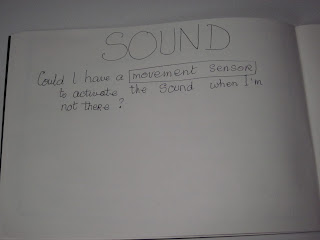 SOUND
Could I have a movement sensor
to activate the sound when I'm
not there?